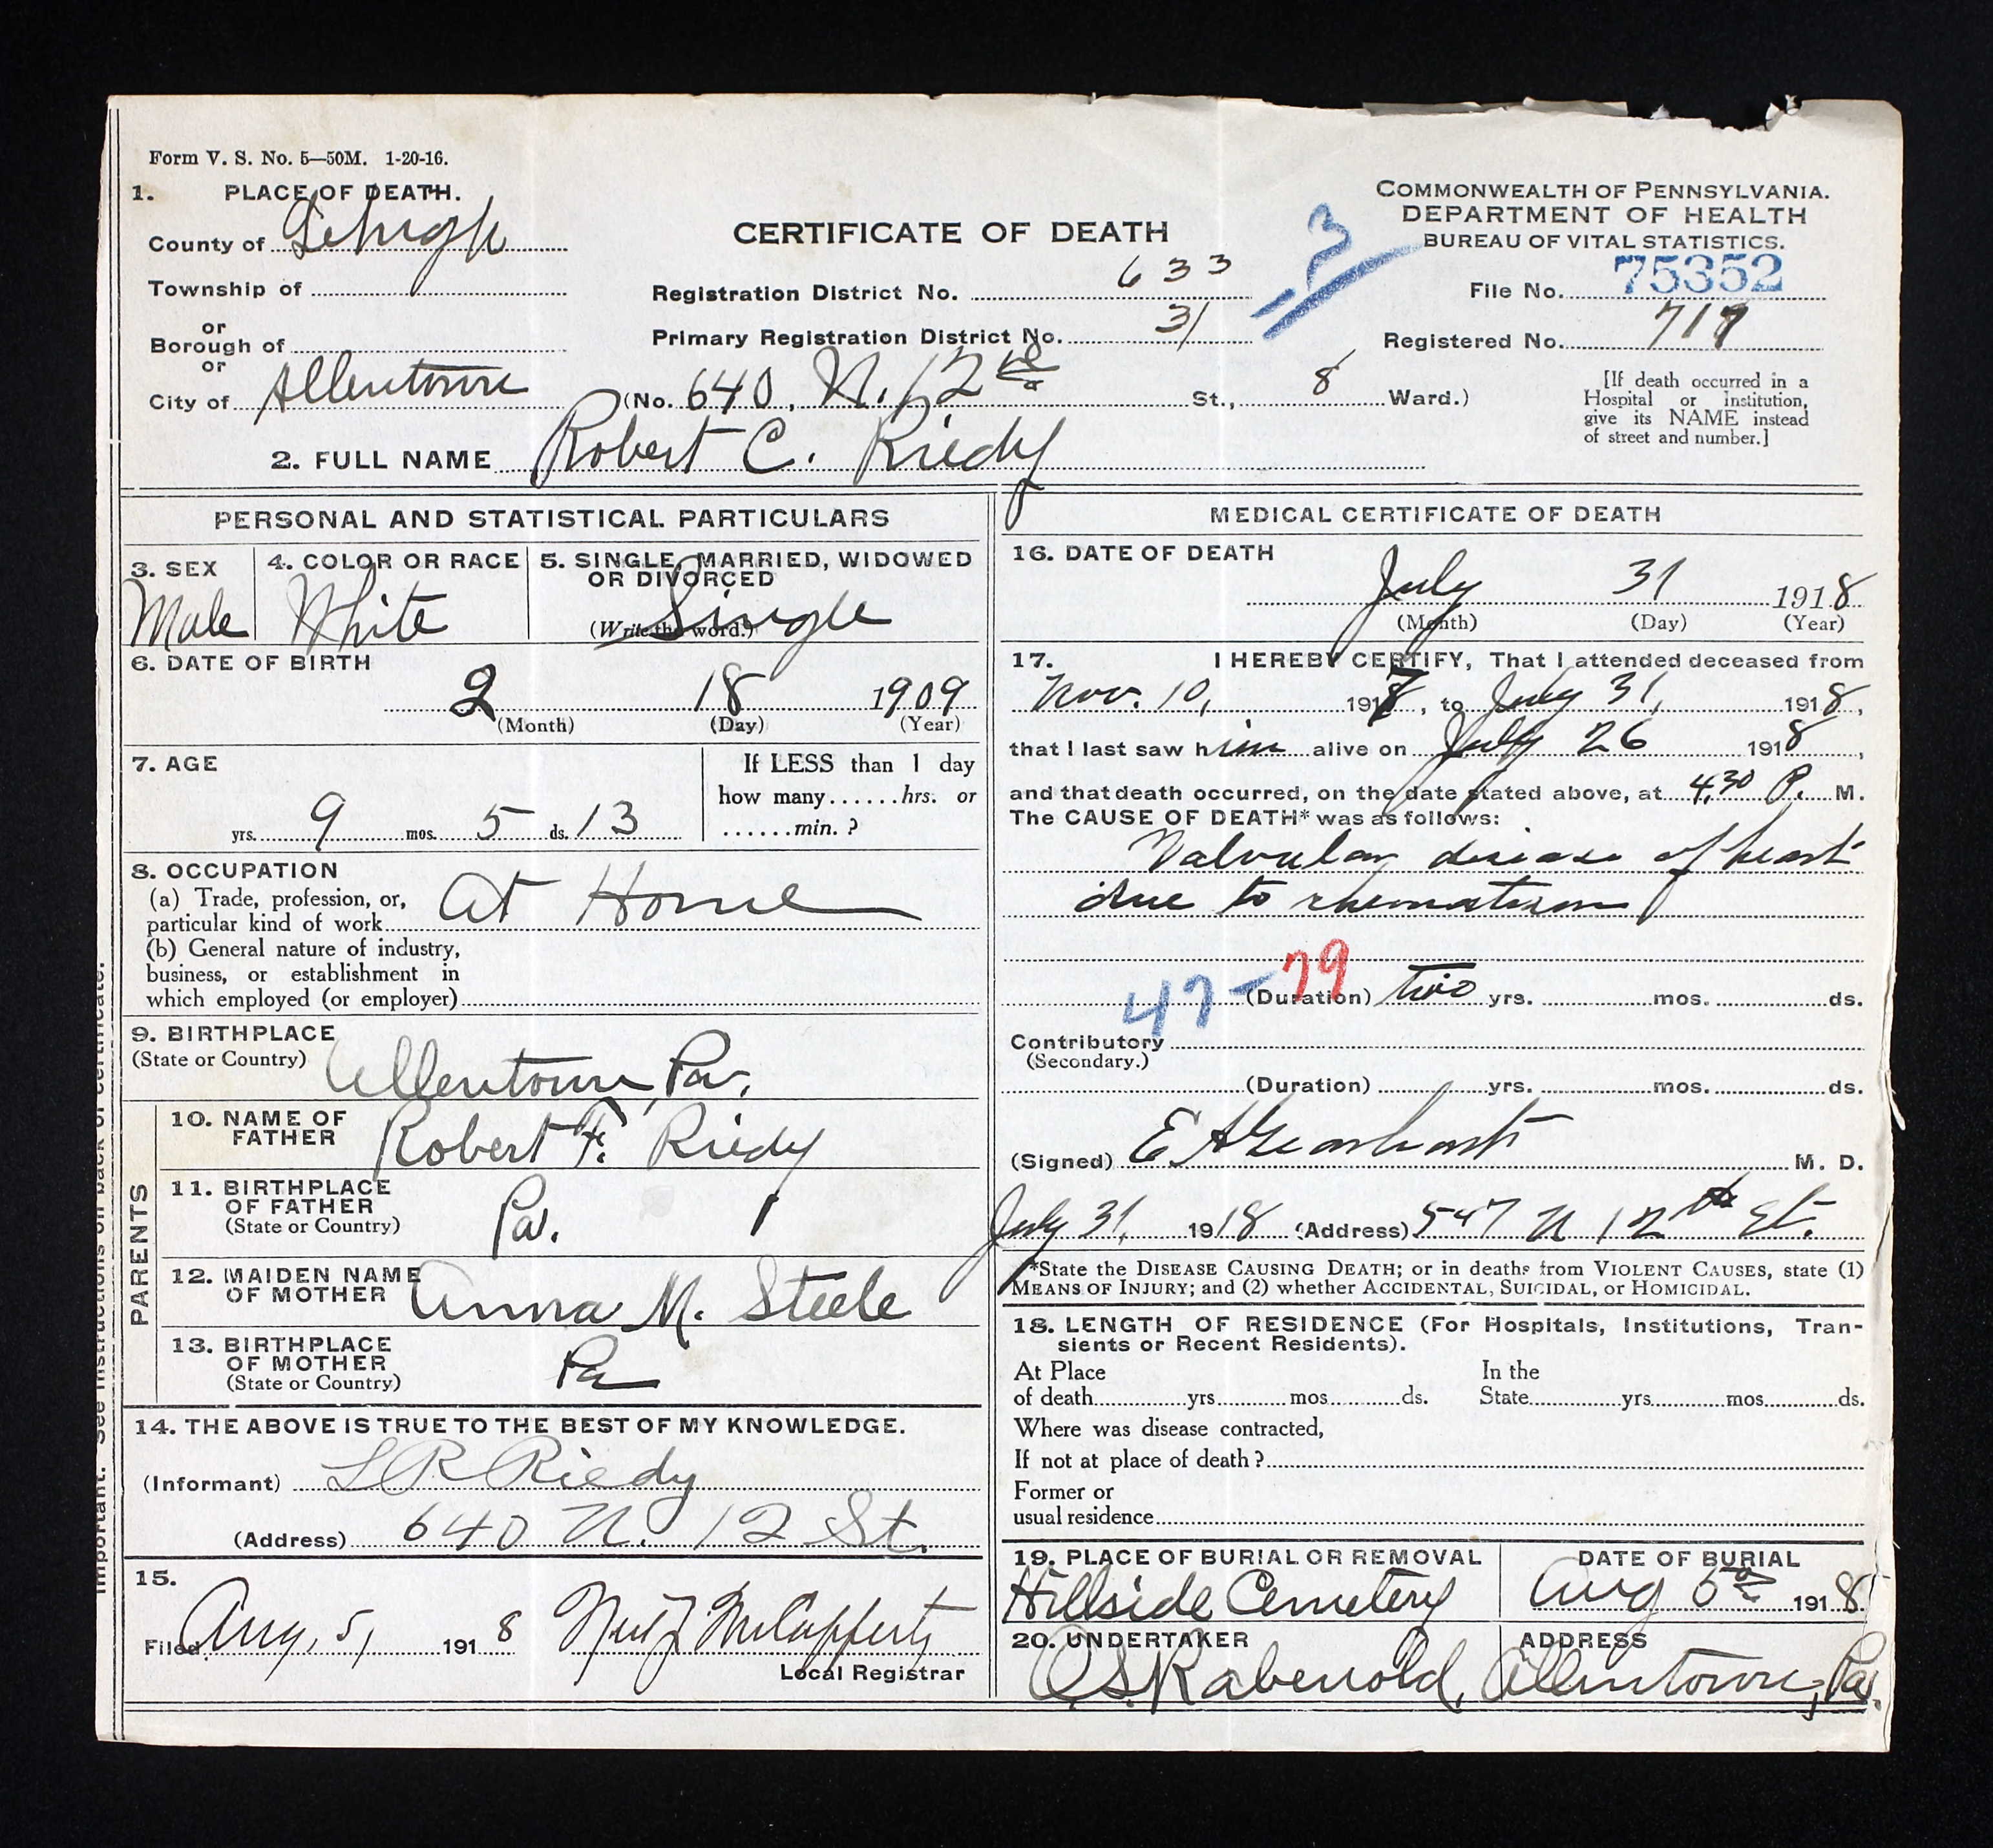 Form V. S. No. 5—50M. 1-20-16.
1. PLACE OF DEATH.
County of Lehigh
Township of
or
Borough of
or
City of Allentown
CERTIFICATE OF DEATH
Registration District No. 633
Primary Registration District No. 31
(No. 640, N. 12th St., 8 Ward.)
3
COMMONWEALTH OF PENNSYLVANIA.
DEPARTMENT OF HEALTH
BUREAU OF VITAL STATISTICS.
File No. 75352
Registered No. 717
[If death occurred in a
Hospital or Institution,
give its NAME instead
of street and number.]
2. FULL NAME Robert C. Riedy
PERSONAL AND STATISTICAL PARTICULARS
3. SEX
Male
4. COLOR OR RACE
White
5. SINGLE, MARRIED, WIDOWED
OR DIVORCED
(Write the word.) Single
6. DATE OF BIRTH
2 18 1909
(Month) (Day) (Year)
7. AGE
yrs. 9 mos. 5 ds. 13
If LESS than 1 day
how many......hrs. or
......min. ?
8. OCCUPATION
(a) Trade, profession, or,
particular kind of work At Home
(b) General nature of industry,
business, or establishment in
which employed (or employer)
9. BIRTHPLACE
(State or Country) Allentown, Pa.
PARENTS
10. NAME OF
FATHER Robert F. Riedy
11. BIRTHPLACE
OF FATHER
(State or Country) Pa.
12. MAIDEN NAME
OF MOTHER Anna M. Steele
13. BIRTHPLACE
OF MOTHER
(State or Country) Pa
14. THE ABOVE IS TRUE TO THE BEST OF MY KNOWLEDGE.
(Informant) L R Riedy
(Address) 640 N. 12 St.
15.
Filed Aug. 5, 1918 McCafferty
Local Registrar
MEDICAL CERTIFICATE OF DEATH
16. DATE OF DEATH
July 31 1918
(Month) (Day) (Year)
17. I HEREBY CERTIFY, That I attended deceased from
Nov. 10, 1917, to July 31, 1918,
that I last saw him alive on July 26 1918,
and that death occurred, on the date stated above, at 4.30 P. M.
The CAUSE OF DEATH* was as follows:
Valvular disease of heart
due to rheumatism
47-79
(Duration) two yrs. mos. ds.
Contributory
(Secondary.)
(Duration) yrs. mos. ds.
(Signed) E H Gearhart M. D.
July 31, 1918 (Address) 547 N 12th St.
*State the DISEASE CAUSING DEATH; or in deaths from VIOLENT CAUSES, state (1)
MEANS OF INJURY; and (2) whether ACCIDENTAL, SUICIDAL, or HOMICIDAL.
18. LENGTH OF RESIDENCE (For Hospitals, Institutions, Tran-
sients or Recent Residents).
At Place In the
of death yrs. mos. ds. State yrs. mos. ds.
Where was disease contracted,
If not at place of death ?
Former or
usual residence
19. PLACE OF BURIAL OR REMOVAL
Hillside Cemetery
DATE OF BURIAL
Aug 5th 1918
20. UNDERTAKER
O S. Rabenold,
ADDRESS
Allentown, Pa.
Important. See instructions on back of certificate.